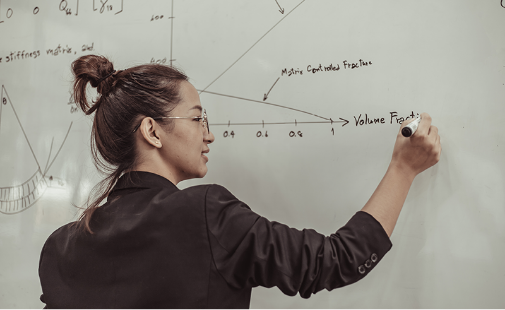 0 0 Q₆₆ ] [ γ₁₂ ]
600
stiffness matrix, and
θ
Matrix Controlled Fracture
0.4 0.6 0.8 1 Volume Fract